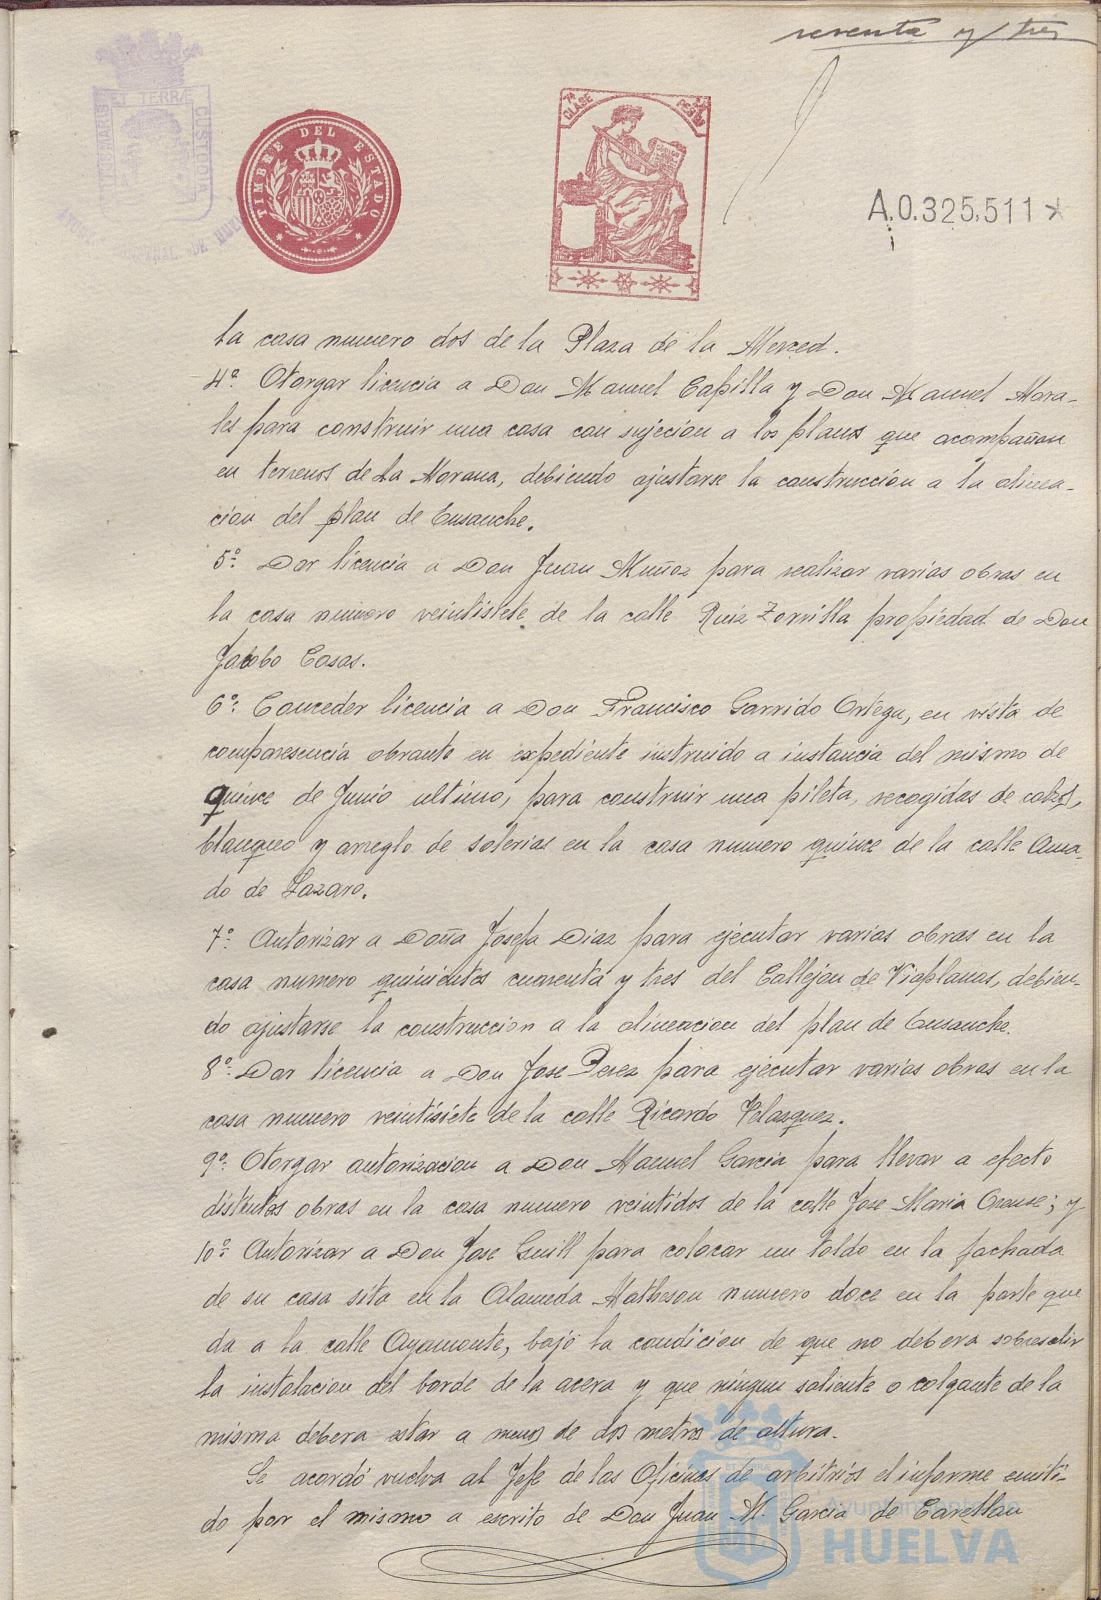 sesenta y tres
PORTUS MARIS ET TERRÆ CUSTODIA
TIMBRE DEL ESTADO
7ª CLASE
A.0.325,511*
la casa numero dos de la Plaza de la Merced.
4º. Otorgar licencia a Don Manuel Capilla y Don Manuel Mora-
les para construir una casa con sujecion a los planos que acompañan
en terrenos de La Morana, debiendo ajustarse la construccion a la alinea-
cion del plan de Ensanche.
5º. Dar licencia a Don Juan Muñoz para realizar varias obras en
la casa numero veintisiete de la calle Ruiz Zorrilla propiedad de Don
Jacobo Casas.
6º. Conceder licencia a Don Francisco Garrido Ortega, en vista de
comparescencia obrante en expediente instruido a instancia del mismo de
quince de Junio ultimo, para construir una pileta, recogidas de cabos,
blanqueo y arreglo de solerias en la casa numero quince de la calle Ama-
do de Lazaro.
7º. Autorizar a Doña Josefa Diaz para ejecutar varias obras en la
casa numero quinientos cuarenta y tres del Callejón de Viaplanas, debien-
do ajustarse la construccion a la alineacion del plan de Ensanche.
8º. Dar licencia a Don Jose Perez para ejecutar varias obras en la
casa numero veintisiete de la calle Ricardo Velazquez.
9º. Otorgar autorizacion a Don Manuel Garcia para llevar a efecto
distintas obras en la casa numero veintidos de la calle Jose Maria Orense; y
10º. Autorizar a Don Jose Guill para colocar un toldo en la fachada
de su casa sita en la Alameda Matheson numero doce en la parte que
da a la calle Ayamonte, bajo la condición de que no debera sobresalir
la instalacion del borde de la acera y que ningun saliente o colgante de la
misma debera estar a menos de dos metros de altura.
Se acordó vuelva al Jefe de las Oficinas de arbitrios el informe emiti-
do por el mismo a escrito de Don Juan M. Garcia de Carellan
Ayuntamiento de
HUELVA